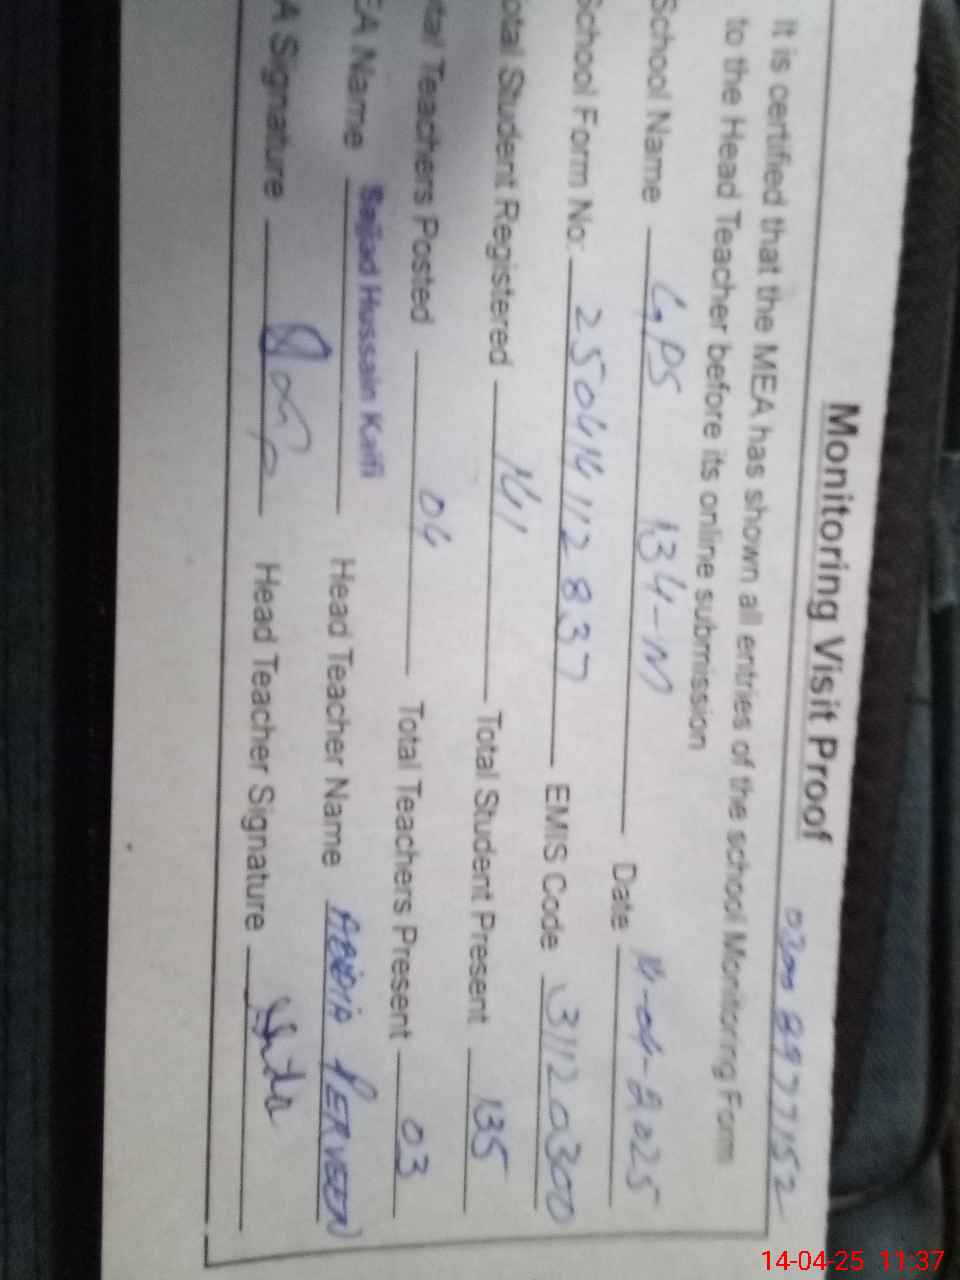 Monitoring Visit Proof 0300 8977152
It is certified that the MEA has shown all entries of the school Monitoring Form
to the Head Teacher before its online submission
School Name GPS 134-M Date 14-04-2025
School Form No: 25041412837 EMIS Code 31120300
otal Student Registered 141 Total Student Present 135
tal Teachers Posted 04 Total Teachers Present 03
EA Name Sajjad Hussain Kaifi Head Teacher Name PERVEEN
A Signature Head Teacher Signature
14-04-25 11:37